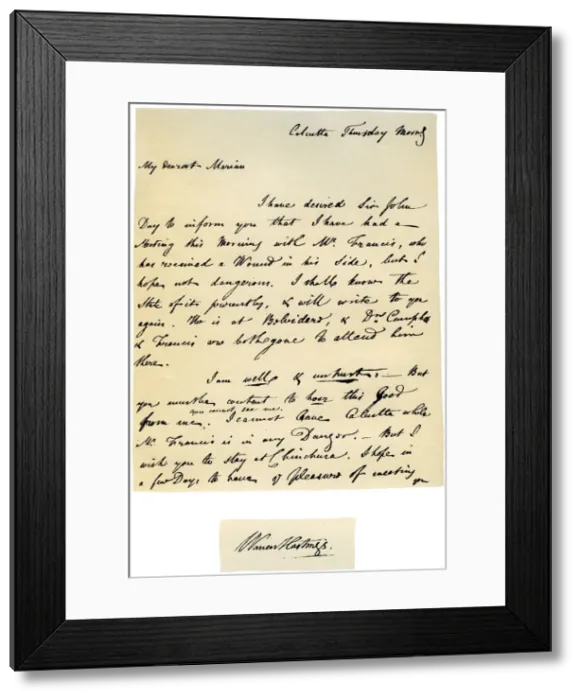 Calcutta Thursday Morng
My dearest Marian
I have desired Sir John
Day to inform you that I have had a
Meeting this Morning with Mr. Francis, who
has received a Wound in his Side, but I
hope not dangerous. I shall know the
State of it presently, & will write to you
again. He is at Belvidere, & Drs. Campbell
& Francis are both gone to attend him
there.
I am well & unhurt. — But
you must be content to hear this Good
from me. you cannot see me. I cannot leave Calcutta while
Mr. Francis is in any Danger. — But I
wish you to stay at Chinchura. I hope in
a few Days to have ye Pleasure of meeting
you
Warren Hastings.